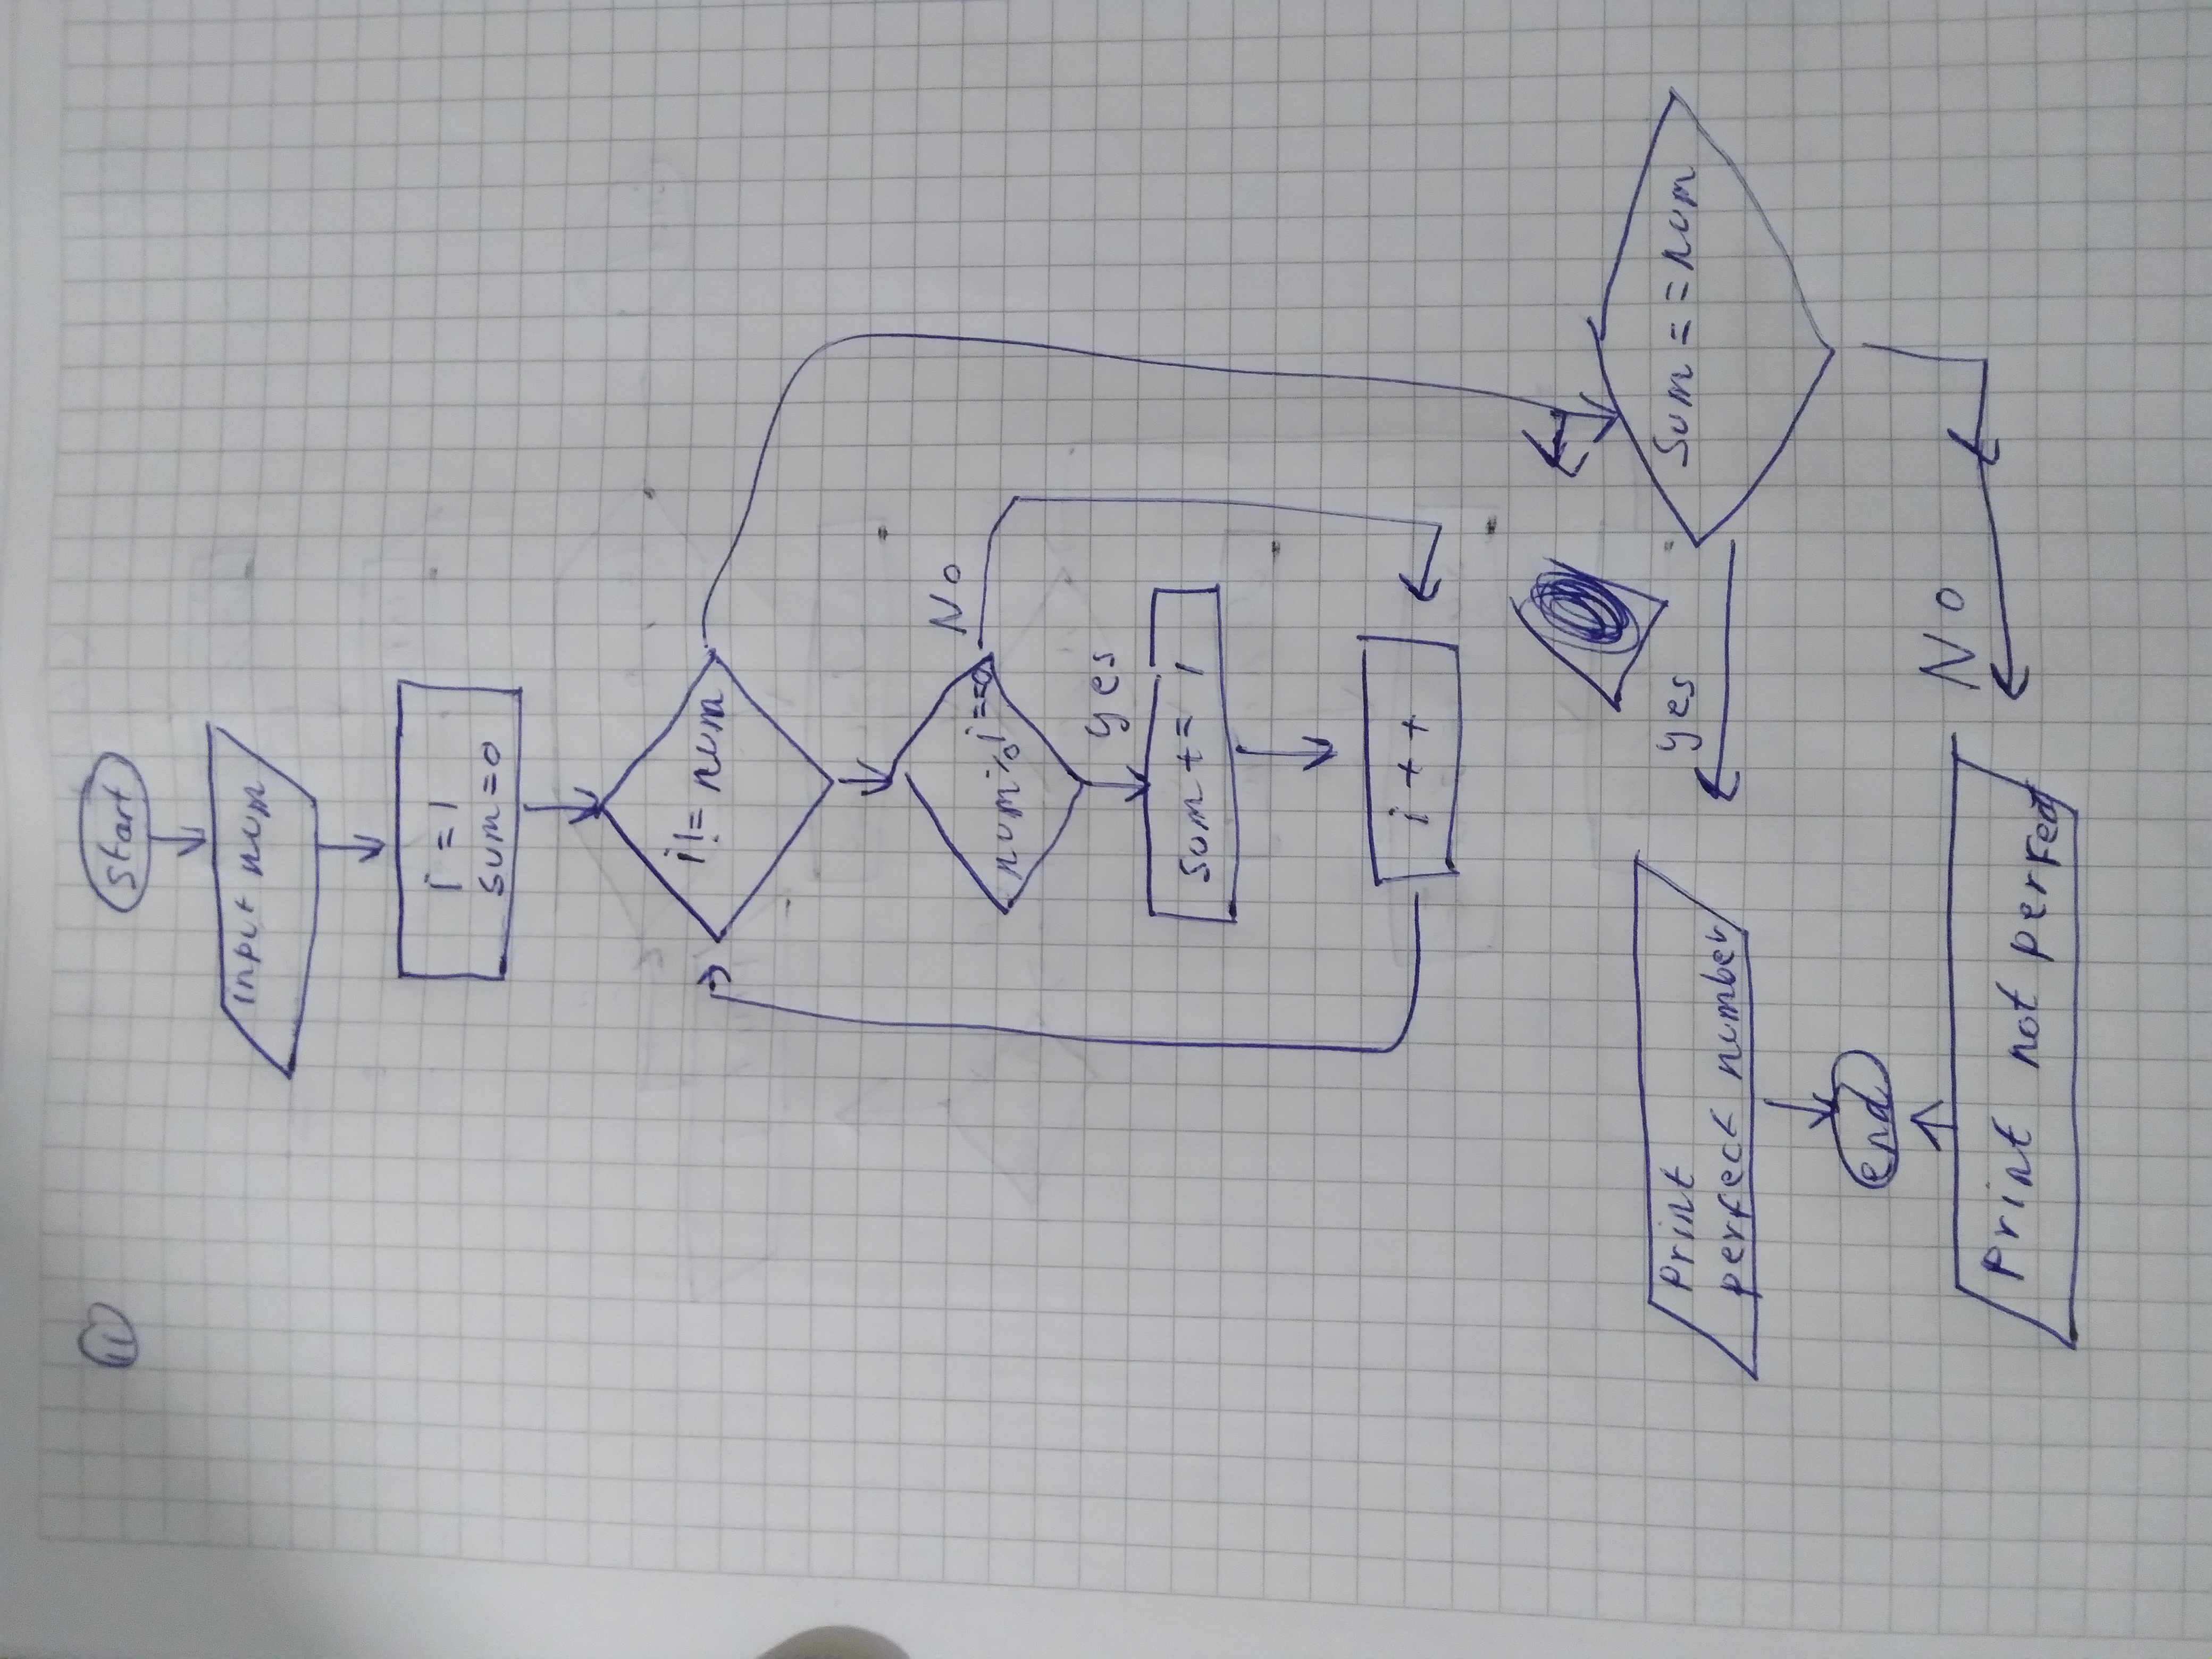 11
start
input num
i = 1
sum = 0
i != num
num % i == 0
No
yes
sum += i
i ++
sum == num
yes
Print
perfect number
end
No
Print not perfect